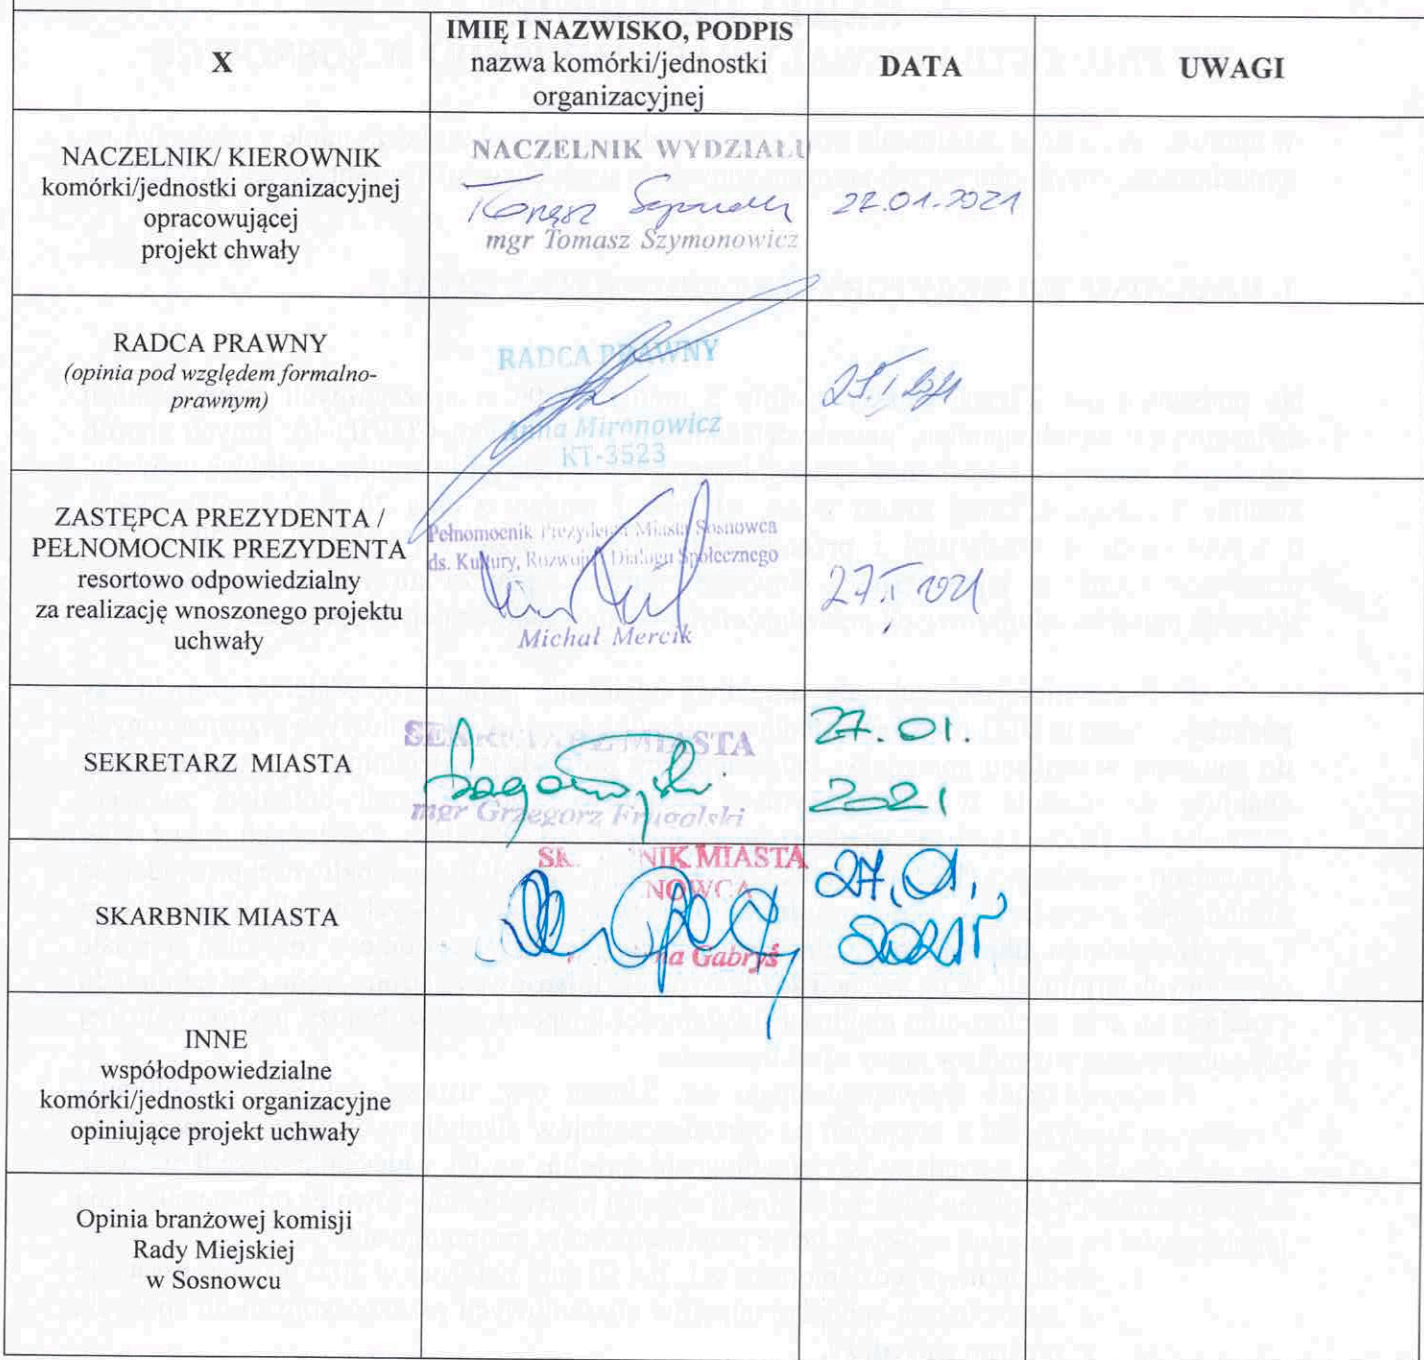 X
IMIĘ I NAZWISKO, PODPIS
nazwa komórki/jednostki
organizacyjnej
DATA
UWAGI
NACZELNIK/ KIEROWNIK
komórki/jednostki organizacyjnej
opracowującej
projekt chwały
NACZELNIK WYDZIAŁU
Tomasz
mgr Tomasz Szymonowicz
22.01.2021
RADCA PRAWNY
(opinia pod względem formalno-
prawnym)
RADCA PRAWNY
Anna Mironowicz
KT-3523
ZASTĘPCA PREZYDENTA /
PEŁNOMOCNIK PREZYDENTA
resortowo odpowiedzialny
za realizację wnoszonego projektu
uchwały
Pełnomocnik Prezydenta Miasta Sosnowca
ds. Kultury, Rozwoju i Dialogu Społecznego
Michał Mercik
27.I 2021
SEKRETARZ MIASTA
SEKRETARZ MIASTA
mgr Grzegorz Frugalski
27.01.
2021
SKARBNIK MIASTA
NIK MIASTA
NOWCA
na Gabryś
27.01.
2021r
INNE
współodpowiedzialne
komórki/jednostki organizacyjne
opiniujące projekt uchwały
Opinia branżowej komisji
Rady Miejskiej
w Sosnowcu